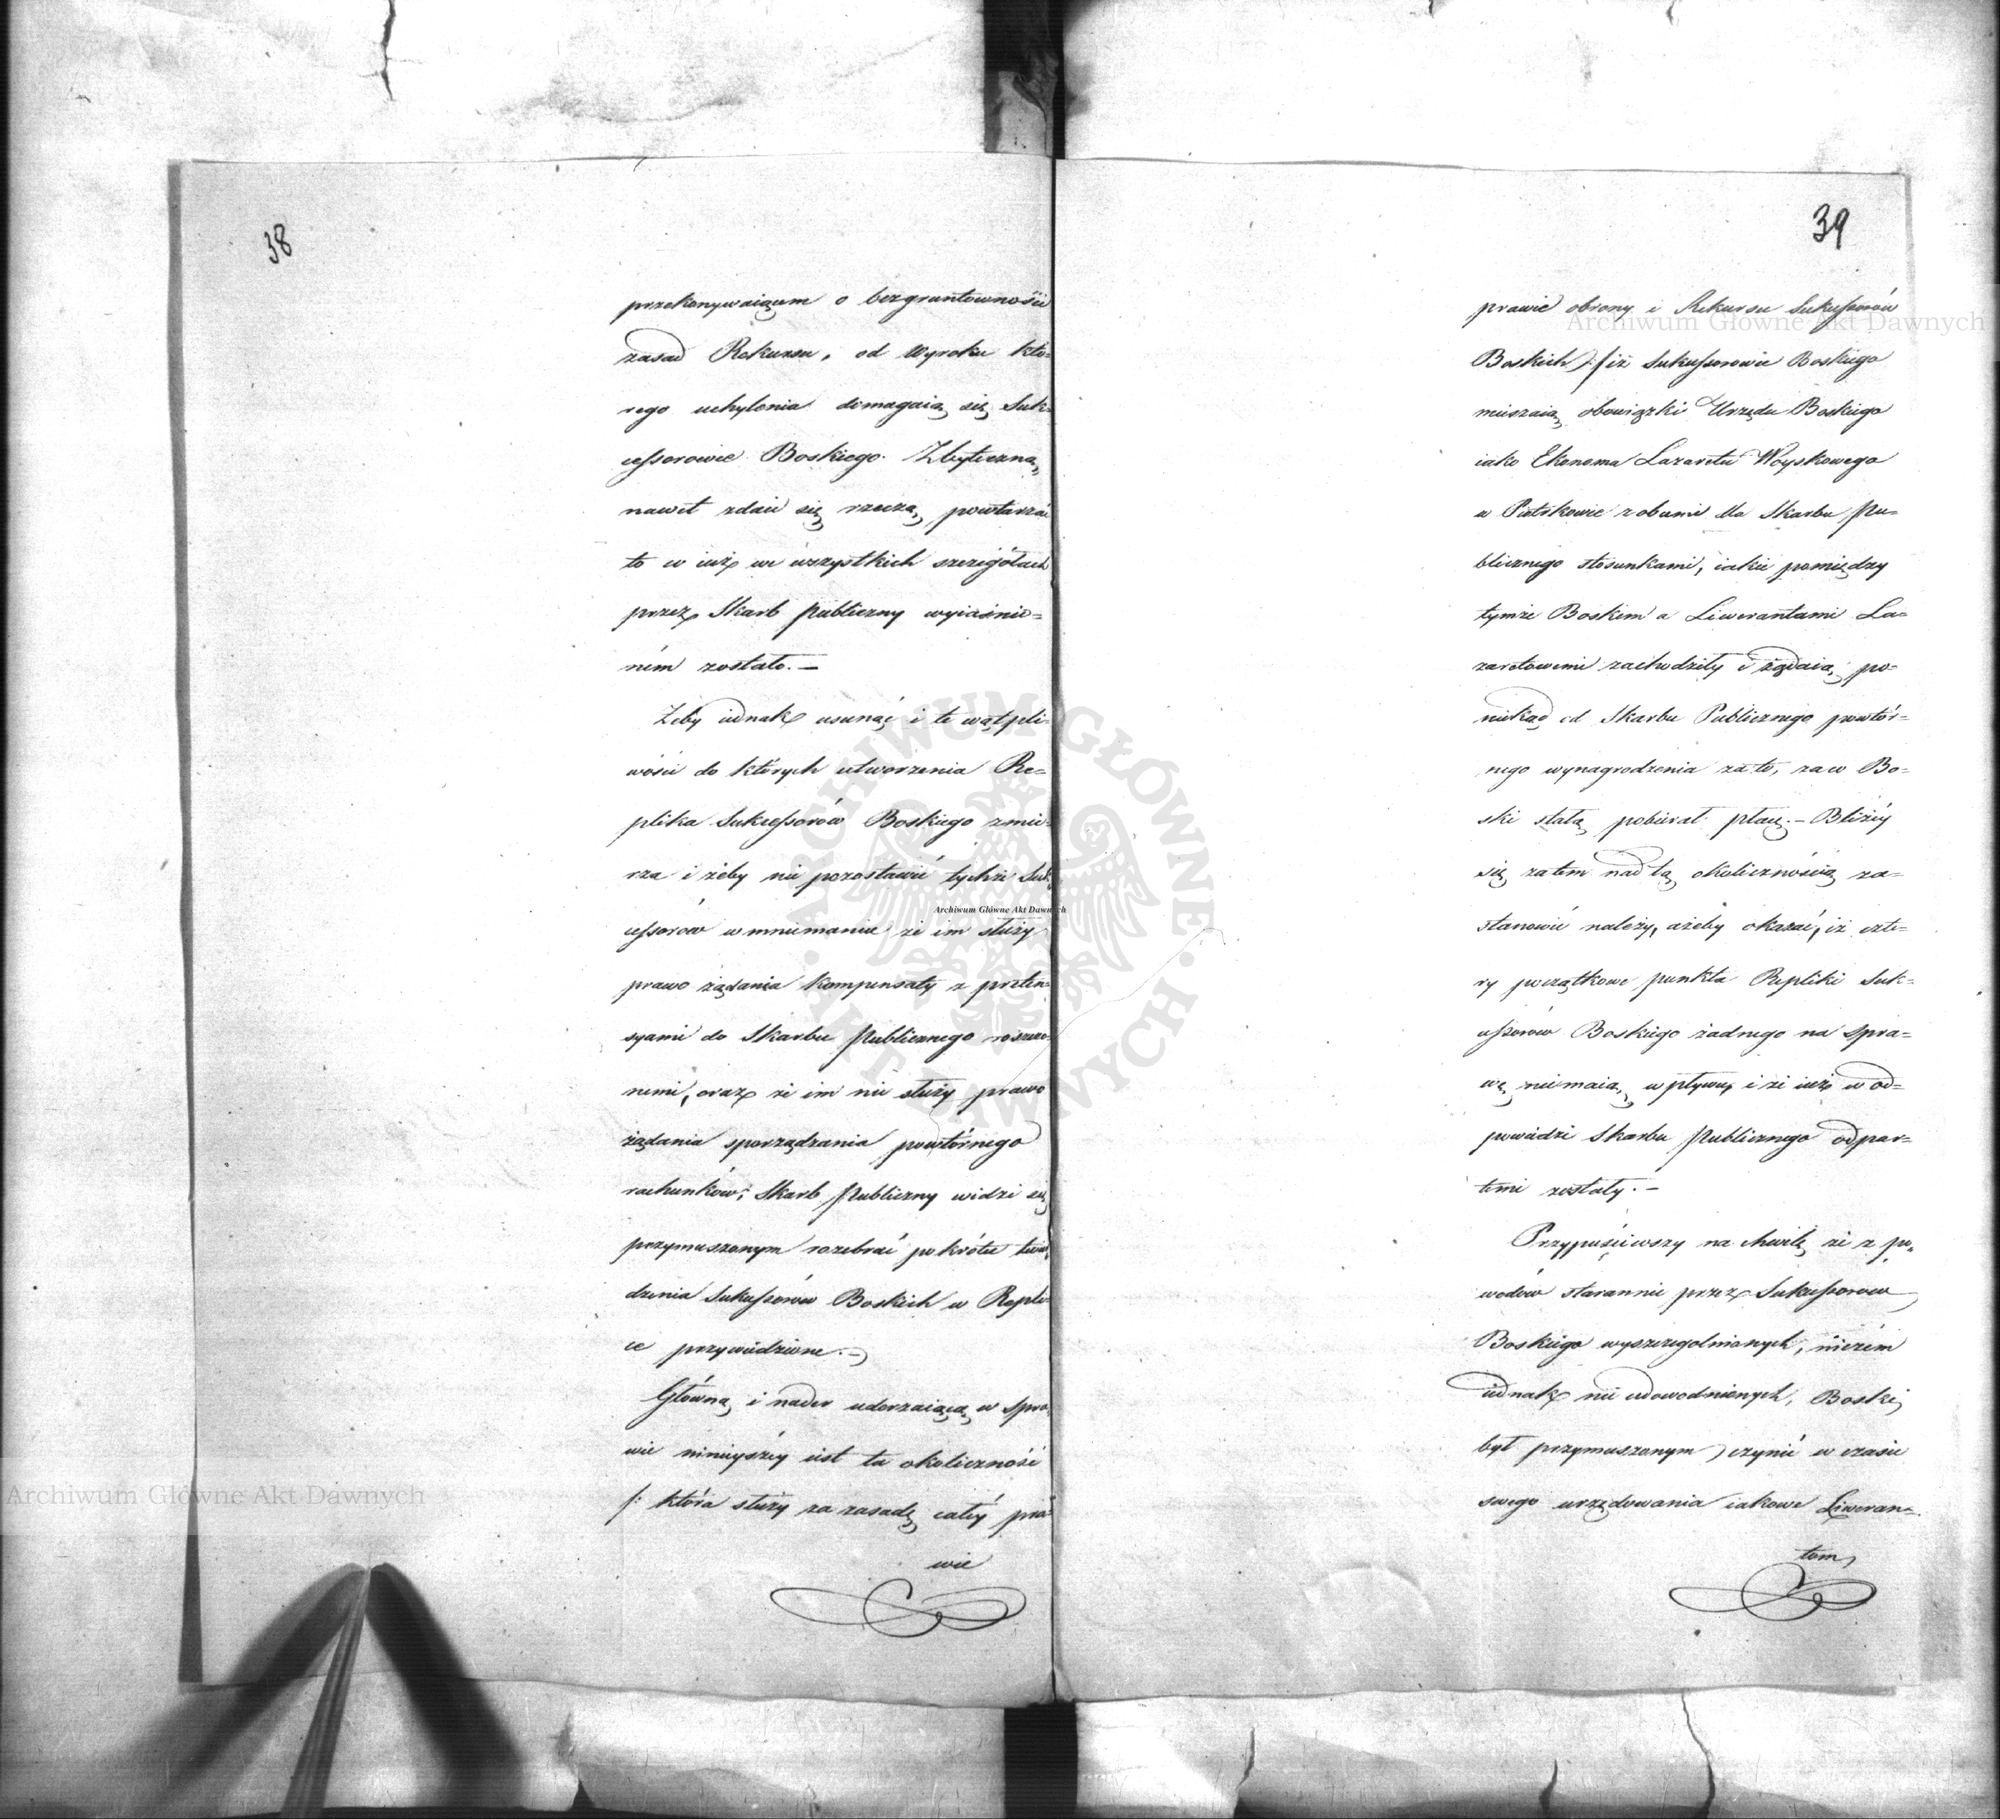 38
przekonywaiącem o bezgruntownośći
zasad Rekursu, od Wyroku któ=
rego uchylenia domagaią się Suk=
cessorowie Boskiego. Zbyteczną,
nawet zdaie się rzeczą, powtarzać
to co iuż we wszystkich szczegółach
przez Skarb publiczny wyiaśnio=
ném zostało. —
Żeby iednak usunąć i te wątpli=
wości do których utworzenia Re=
plika Sukcessorów Boskiego zmie=
rza i żeby nie pozostawić tychże Suk=
cessorów w mniemaniu że im służy
prawo żądania kompensaty z preten=
syami do Skarbu Publicznego roszczo=
nemi, oraz że im nie służy prawo
żądania sporządzania powtórnego
rachunków; Skarb Publiczny widzi się
przymuszonym rozebrać po krótce twier=
dzenia Sukcessorów Boskich w Repli=
ce przywiedzione. —
Główną i nader uderzaiącą w Spra=
wie ninieyszéy iest ta okoliczność
/: która służy za zasadę całéy pra=
wie
39
prawie obrony i Rekursu Sukcessorów
Boskich :/ iż Sukcessorowie Boskiego
mieszaią obowiązki Urzędu Boskiego
iako Ekonoma Lazaretu Woyskowego
w Piotrkowie z obcemi dla Skarbu Pu=
blicznego stosunkami, iakie pomiędzy
tymże Boskim a Liwerantami La=
zaretowemi zachodziły i żądaią, po=
niekąd od Skarbu Publicznego powtór=
nego wynagrodzenia za to, za co Bo=
ski stałą pobierał płacę. — Bliżéy
się zatem nad tą okolicznością za=
stanowić należy, ażeby okazać, iż czte=
ry początkowe punkta Repliki Suk=
cessorów Boskiego żadnego na Spra=
wę nie maią wpływu, i że iuż w od=
powiedzi Skarbu Publicznego odpar=
temi zostały. —
Przypuściwszy na chwilę że z po=
wodów starannie przez Sukcessorów
Boskiego wyszczególnionych, niczém
iednak nie udowodnionych, Boski
był przymuszonym czynić w czasie
swego urzędowania iakowe Liweran=
tom,
Archiwum Główne Akt Dawnych
Archiwum Główne Akt Dawnych
Archiwum Główne Akt Dawnych
ARCHIWUM GŁÓWNE AKT DAWNYCH